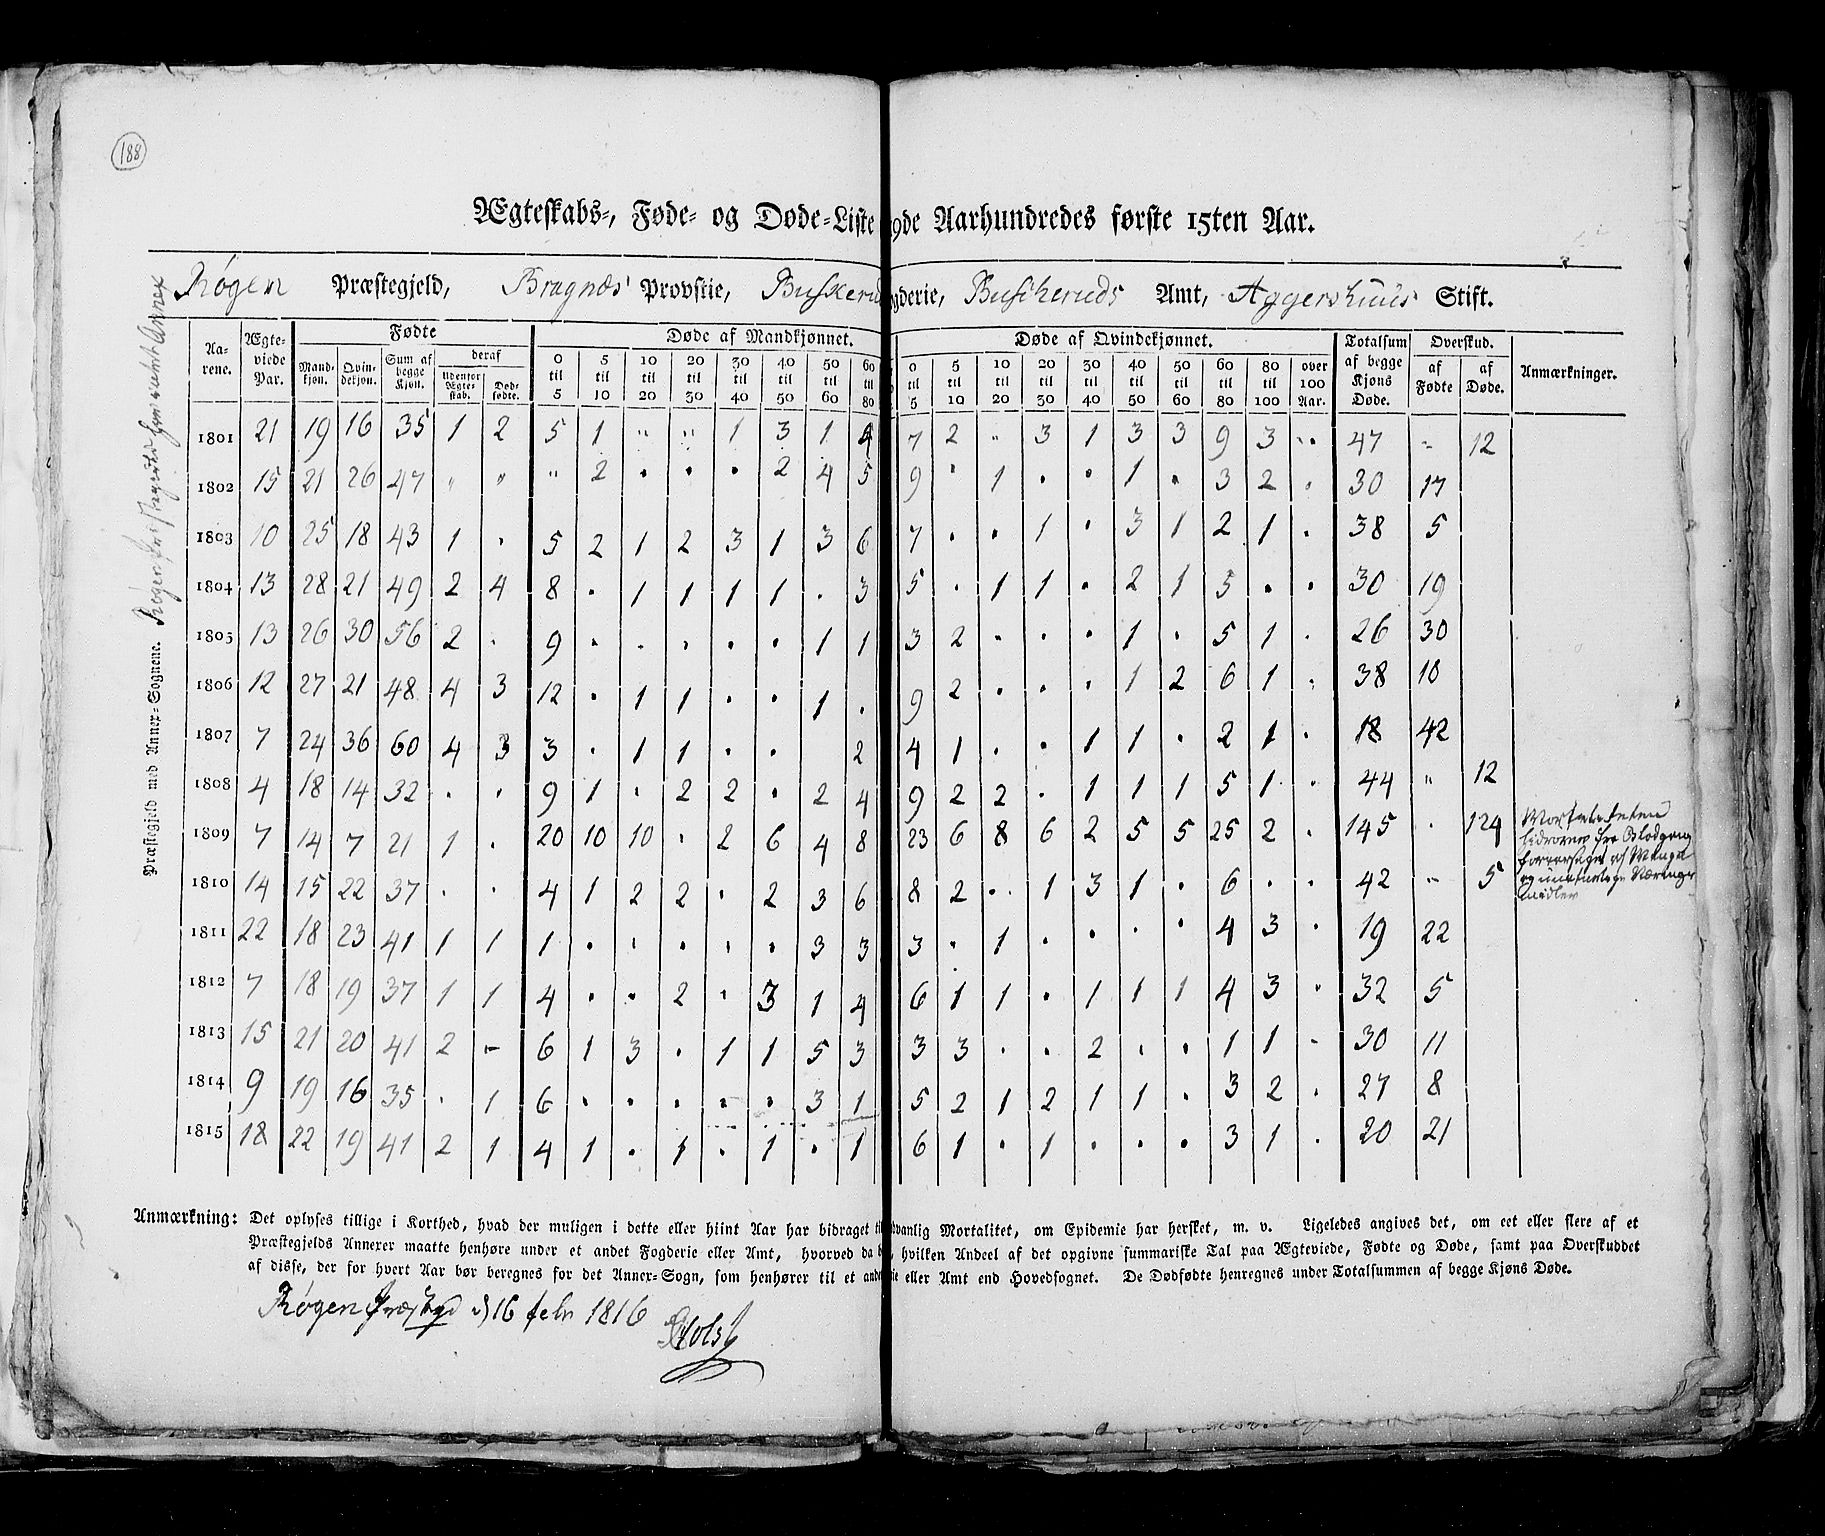 188
Ægteskabs-, Føde- og Døde-Liste 9de Aarhundredes første 15ten Aar.
Røgen Præstegjeld, Bragnæs Provstie, Buskerud gderie, Buscheruds Amt, Aggershuus Stift.
Præstegjeld med Annex-Sognene. Røgen
Aarene. Ægteviede Par. Fødte Døde af Mandkjønnet. Døde af Qvindekjønnet. Totalsum af begge Kjøns Døde. Overskud. Anmærkninger.
Mandkjøn. Qvindekjøn. Sum af begge Kjøn. deraf af Fødte af Døde.
Udenfor Ægteskab. Dødfødte. 0 til 5 5 til 10 10 til 20 20 til 30 30 til 40 40 til 50 50 til 60 60 til 80 0 til 5 5 til 10 10 til 20 20 til 30 30 til 40 40 til 50 50 til 60 60 til 80 80 til 100 over 100 Aar.
1801 21 19 16 35 1 2 5 1 " " 1 3 1 4 7 2 " 3 1 3 3 9 3 " 47 " 12
1802 15 21 26 47 " " " 2 • • • 2 4 5 9 " 1 • • 1 • 3 2 " 30 17
1803 10 25 18 43 1 • 5 2 1 2 3 1 3 6 7 • • 1 • 3 1 2 1 • 38 5
1804 13 28 21 49 2 4 8 • 1 1 1 1 • 3 5 • 1 1 • 2 1 5 • • 30 19
1805 13 26 30 56 2 • 9 • • • • • 1 1 3 2 • • • 1 • 5 1 • 26 30
1806 12 27 21 48 4 3 12 • 1 1 • • 1 • 9 2 • • • 1 2 6 1 • 38 10
1807 7 24 36 60 4 3 3 • 1 1 • • 2 4 1 • • 1 1 • 2 1 • 18 42
1808 4 18 14 32 • • 9 1 • 2 2 • 2 4 9 2 2 • 1 1 1 5 1 • 44 " 12
1809 7 14 7 21 1 • 20 10 10 • 2 6 4 8 23 6 8 6 2 5 5 25 2 • 145 • 124
1810 14 15 22 37 • • 4 1 2 2 • 2 3 6 8 2 • 1 3 1 • 6 • • 42 " 5
1811 22 18 23 41 1 1 1 • • • • • 3 3 3 • 1 • • • • 4 3 • 19 22
1812 7 18 19 37 1 1 4 • • 2 • 3 1 4 6 1 1 • 1 1 1 4 3 • 32 5
1813 15 21 20 41 2 – 6 1 3 • 1 1 5 3 3 3 • • 2 • • 1 1 – 30 11
1814 9 19 16 35 • 1 6 • • • • • 3 1 5 2 1 2 1 1 • 3 2 • 27 8
1815 18 22 19 41 2 1 4 1 • 1 • 1 • 1 6 1 • 1 • • • 3 1 • 20 21
Blodgang
af Mangel
og Nærings
midler
Anmærkning: Det oplyses tillige i Korthed, hvad der muligen i dette eller hiint Aar har bidraget til dvanlig Mortalitet, om Epidemie har hersket, m. v. Ligeledes angives det, om eet eller flere af et
Præstegjelds Annexer maatte henhøre under et andet Fogderie eller Amt, hvorved da b , hvilken Andeel af det opgivne summariske Tal paa Ægteviede, Fødte og Døde, samt paa Overskuddet
af disse, der for hvert Aar bør beregnes for det Annex-Sogn, som henhører til et ande ie eller Amt end Hovedsognet. De Dødfødte henregnes under Totalsummen af begge Kjøns Døde.
Røgen Præstegd d 16 febr 1816